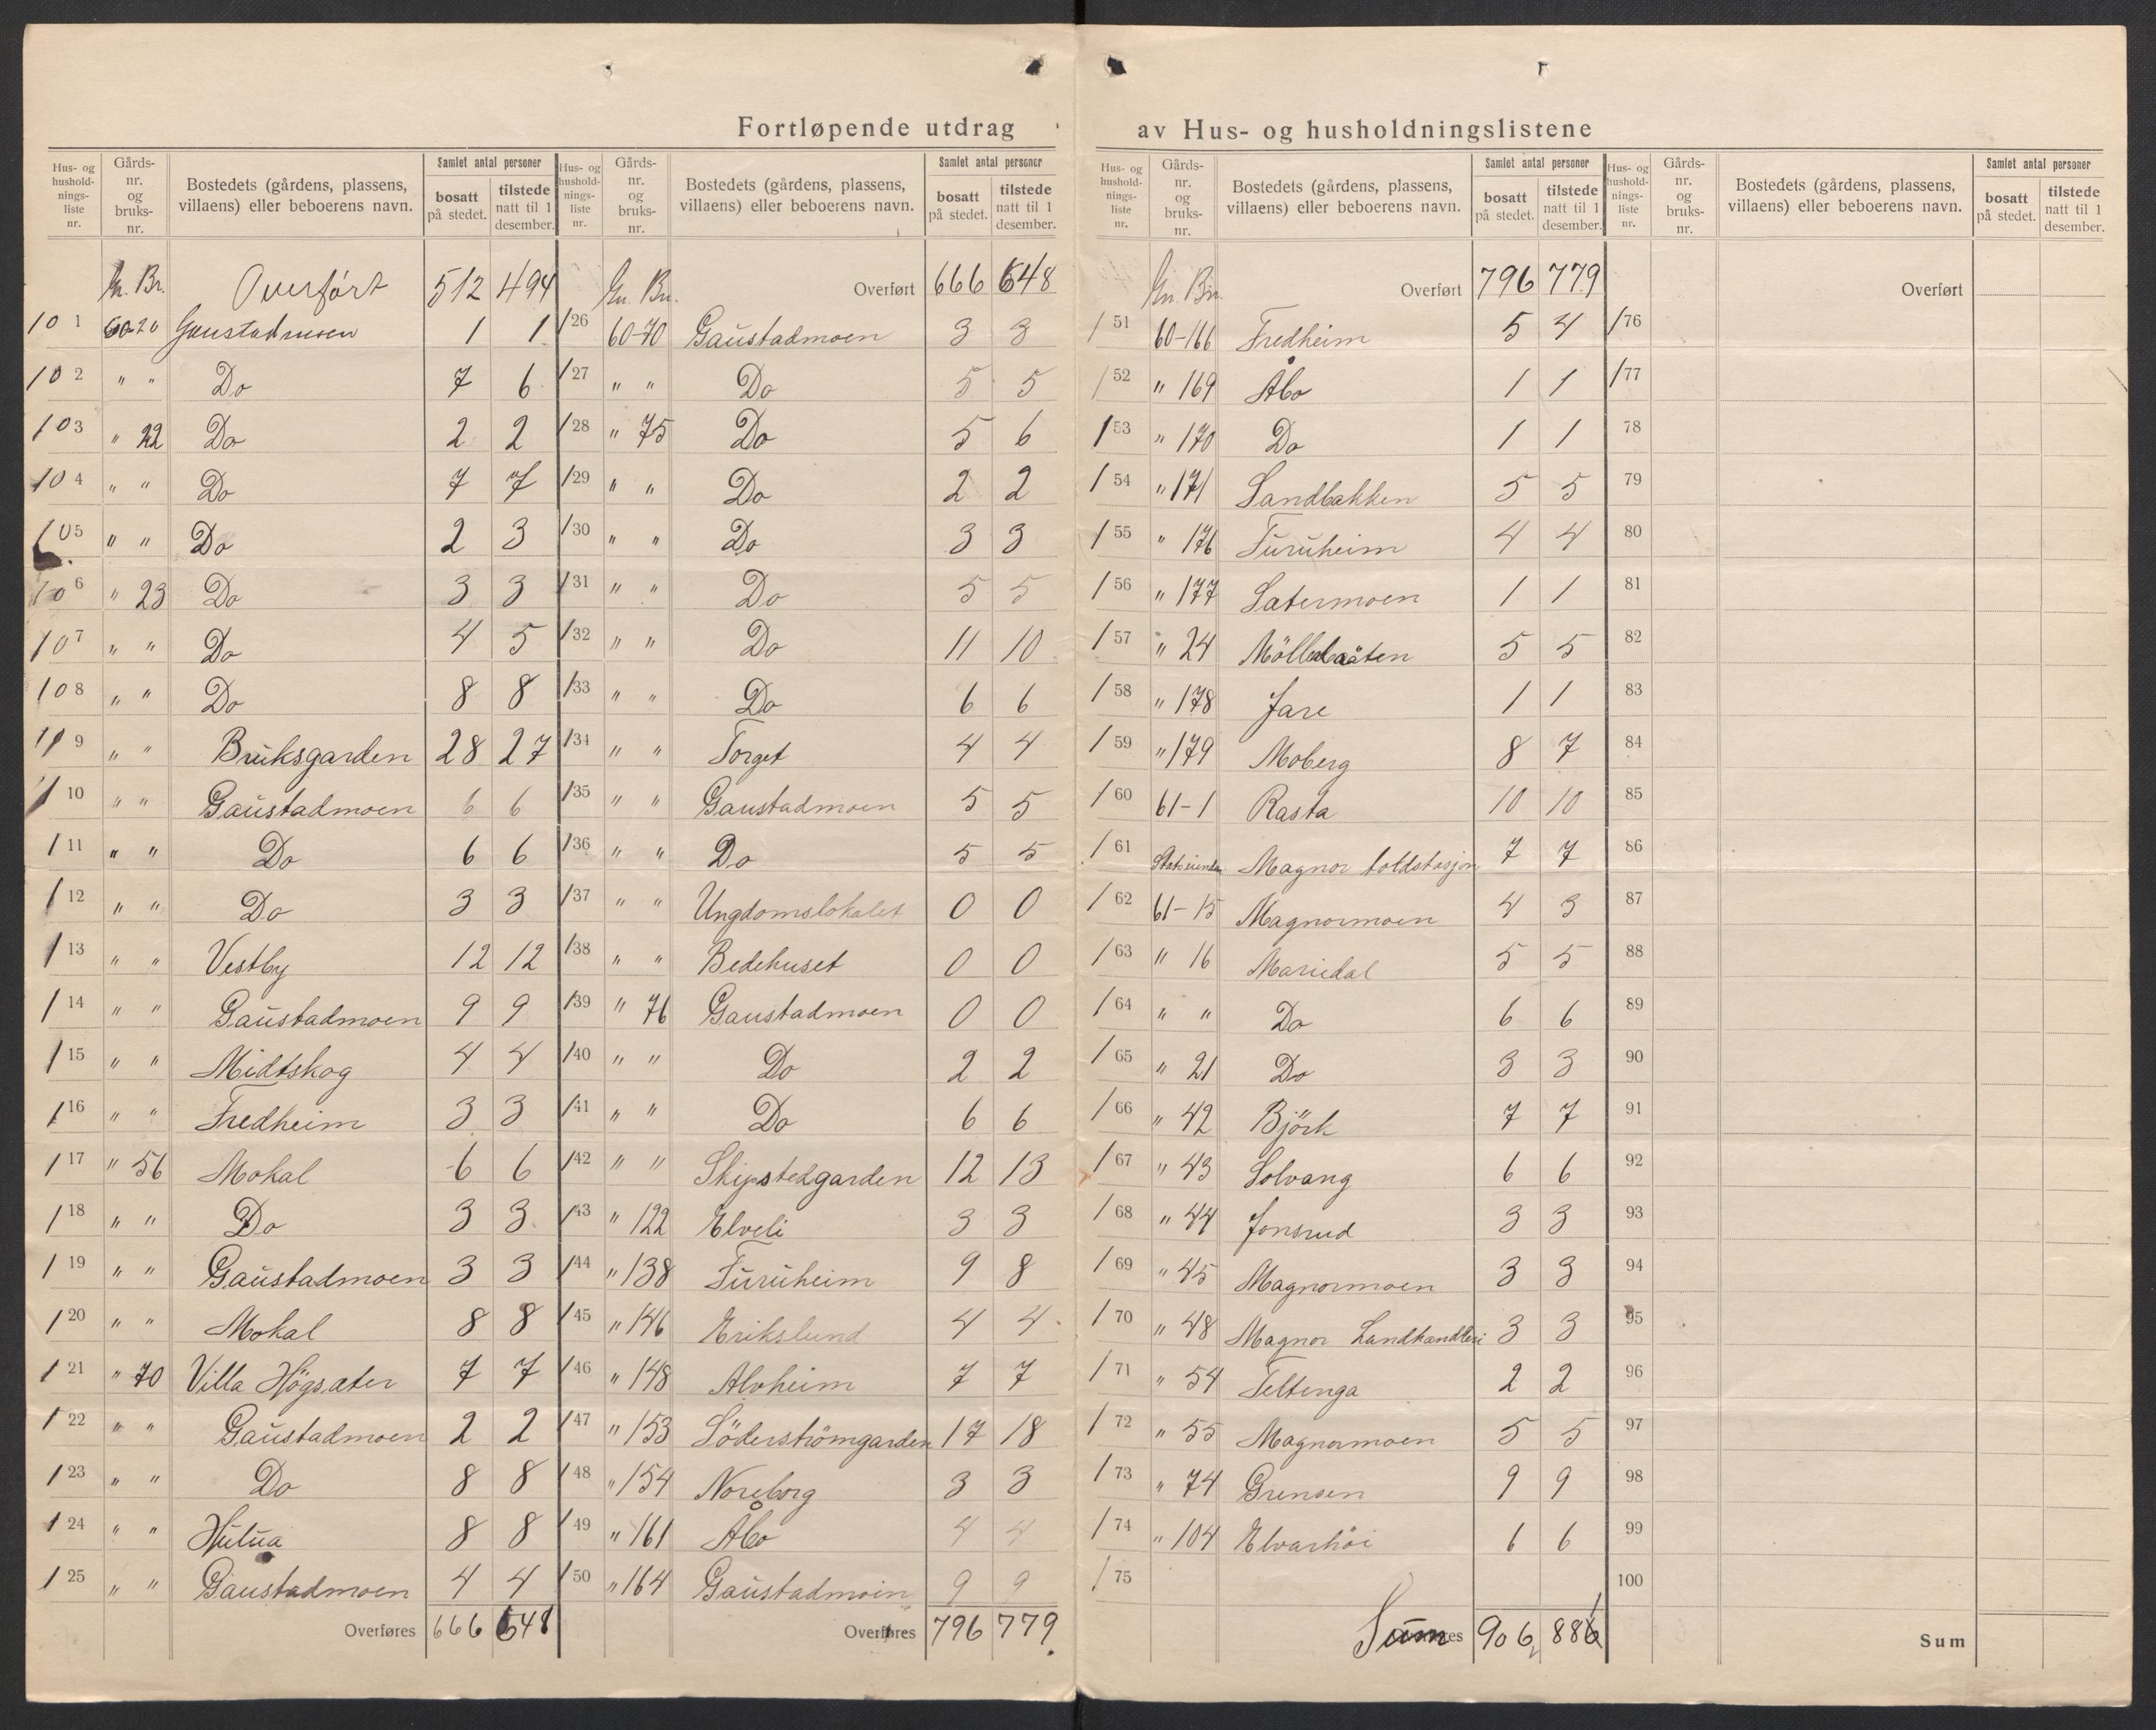 Fortløpende utdrag av Hus- og husholdningslistene
Hus- og husholdnings- liste nr. | Gårds- nr. og bruks- nr. | Bostedets (gårdens, plassens, villaens) eller beboerens navn. | Samlet antal personer: bosatt på stedet. | tilstede natt til 1 desember.
Gn. Br. Overført 512 494
101 60-20 Gaustadmoen 1 1
102 " " Do 7 6
103 " 22 Do 2 2
104 " " Do 7 7
105 " " Do 2 3
106 " 23 Do 3 3
107 " " Do 4 5
108 " " Do 8 8
109 " " Bruksgarden 28 27
110 " " Gaustadmoen 6 6
111 " " Do 6 6
112 " " Do 3 3
113 " " Vestby 12 12
114 " " Gaustadmoen 9 9
115 " " Midtskog 4 4
116 " " Fredheim 3 3
117 " 56 Mokal 6 6
118 " " Do 3 3
119 " " Gaustadmoen 3 3
120 " " Mokal 8 8
121 " 70 Villa Högsater 7 7
122 " " Gaustadmoen 2 2
123 " " Do 8 8
124 " " Hulua 8 8
125 " " Gaustadmoen 4 4
Overføres 666 648
Hus- og husholdnings- liste nr. | Gårds- nr. og bruks- nr. | Bostedets (gårdens, plassens, villaens) eller beboerens navn. | Samlet antal personer: bosatt på stedet. | tilstede natt til 1 desember.
Gn. Bn. Overført 666 648
126 60-70 Gaustadmoen 3 3
127 " " Do 5 5
128 " 75 Do 5 6
129 " " Do 2 2
130 " " Do 3 3
131 " " Do 5 5
132 " " Do 11 10
133 " " Do 6 6
134 " " Torget 4 4
135 " " Gaustadmoen 5 5
136 " " Do 5 5
137 " " Ungdomslokalet 0 0
138 " " Bedehuset 0 0
139 " 76 Gaustadmoen 0 0
140 " " Do 2 2
141 " " Do 6 6
142 " " Skipstedgarden 12 13
143 " 122 Elveli 3 3
144 " 138 Furuheim 9 8
145 " 146 Erikslund 4 4
146 " 148 Alvheim 7 7
147 " 153 Söderströmgarden 17 18
148 " 154 Noreborg 3 3
149 " 161 Åbo 4 4
150 " 164 Gaustadmoin 9 9
Overføres 796 779
Hus- og husholdnings- liste nr. | Gårds- nr. og bruks- nr. | Bostedets (gårdens, plassens, villaens) eller beboerens navn. | Samlet antal personer: bosatt på stedet. | tilstede natt til 1 desember.
Gn. Bn. Overført 796 779
151 60-166 Fredheim 5 4
152 " 169 Åbo 1 1
153 " 170 Do 1 1
154 " 171 Sandbakken 5 5
155 " 176 Furuheim 4 4
156 " 177 Satermoen 1 1
157 " 24 5 5
158 " 178 Jare 1 1
159 " 179 Moberg 8 7
160 61-1 Rasta 10 10
161 Magnor toldstasjon 7 7
162 61-15 Magnormoen 4 3
163 " 16 Mariedal 5 5
164 " " Do 6 6
165 " 21 Do 3 3
166 " 42 Björk 7 7
167 " 43 Solvang 6 6
168 " 44 Jonsrud 3 3
169 " 45 Magnormoen 3 3
170 " 48 Magnor Landhandleri 3 3
171 " 54 Teltenga 2 2
172 " 55 Magnormoen 5 5
173 " 74 Grensen 9 9
174 " 104 Elvarhöi 6 6
175
Sum 906 886
Hus- og husholdnings- liste nr. | Gårds- nr. og bruks- nr. | Bostedets (gårdens, plassens, villaens) eller beboerens navn. | Samlet antal personer: bosatt på stedet. | tilstede natt til 1 desember.
Overført
176
177
78
79
80
81
82
83
84
85
86
87
88
89
90
91
92
93
94
95
96
97
98
99
100
Sum